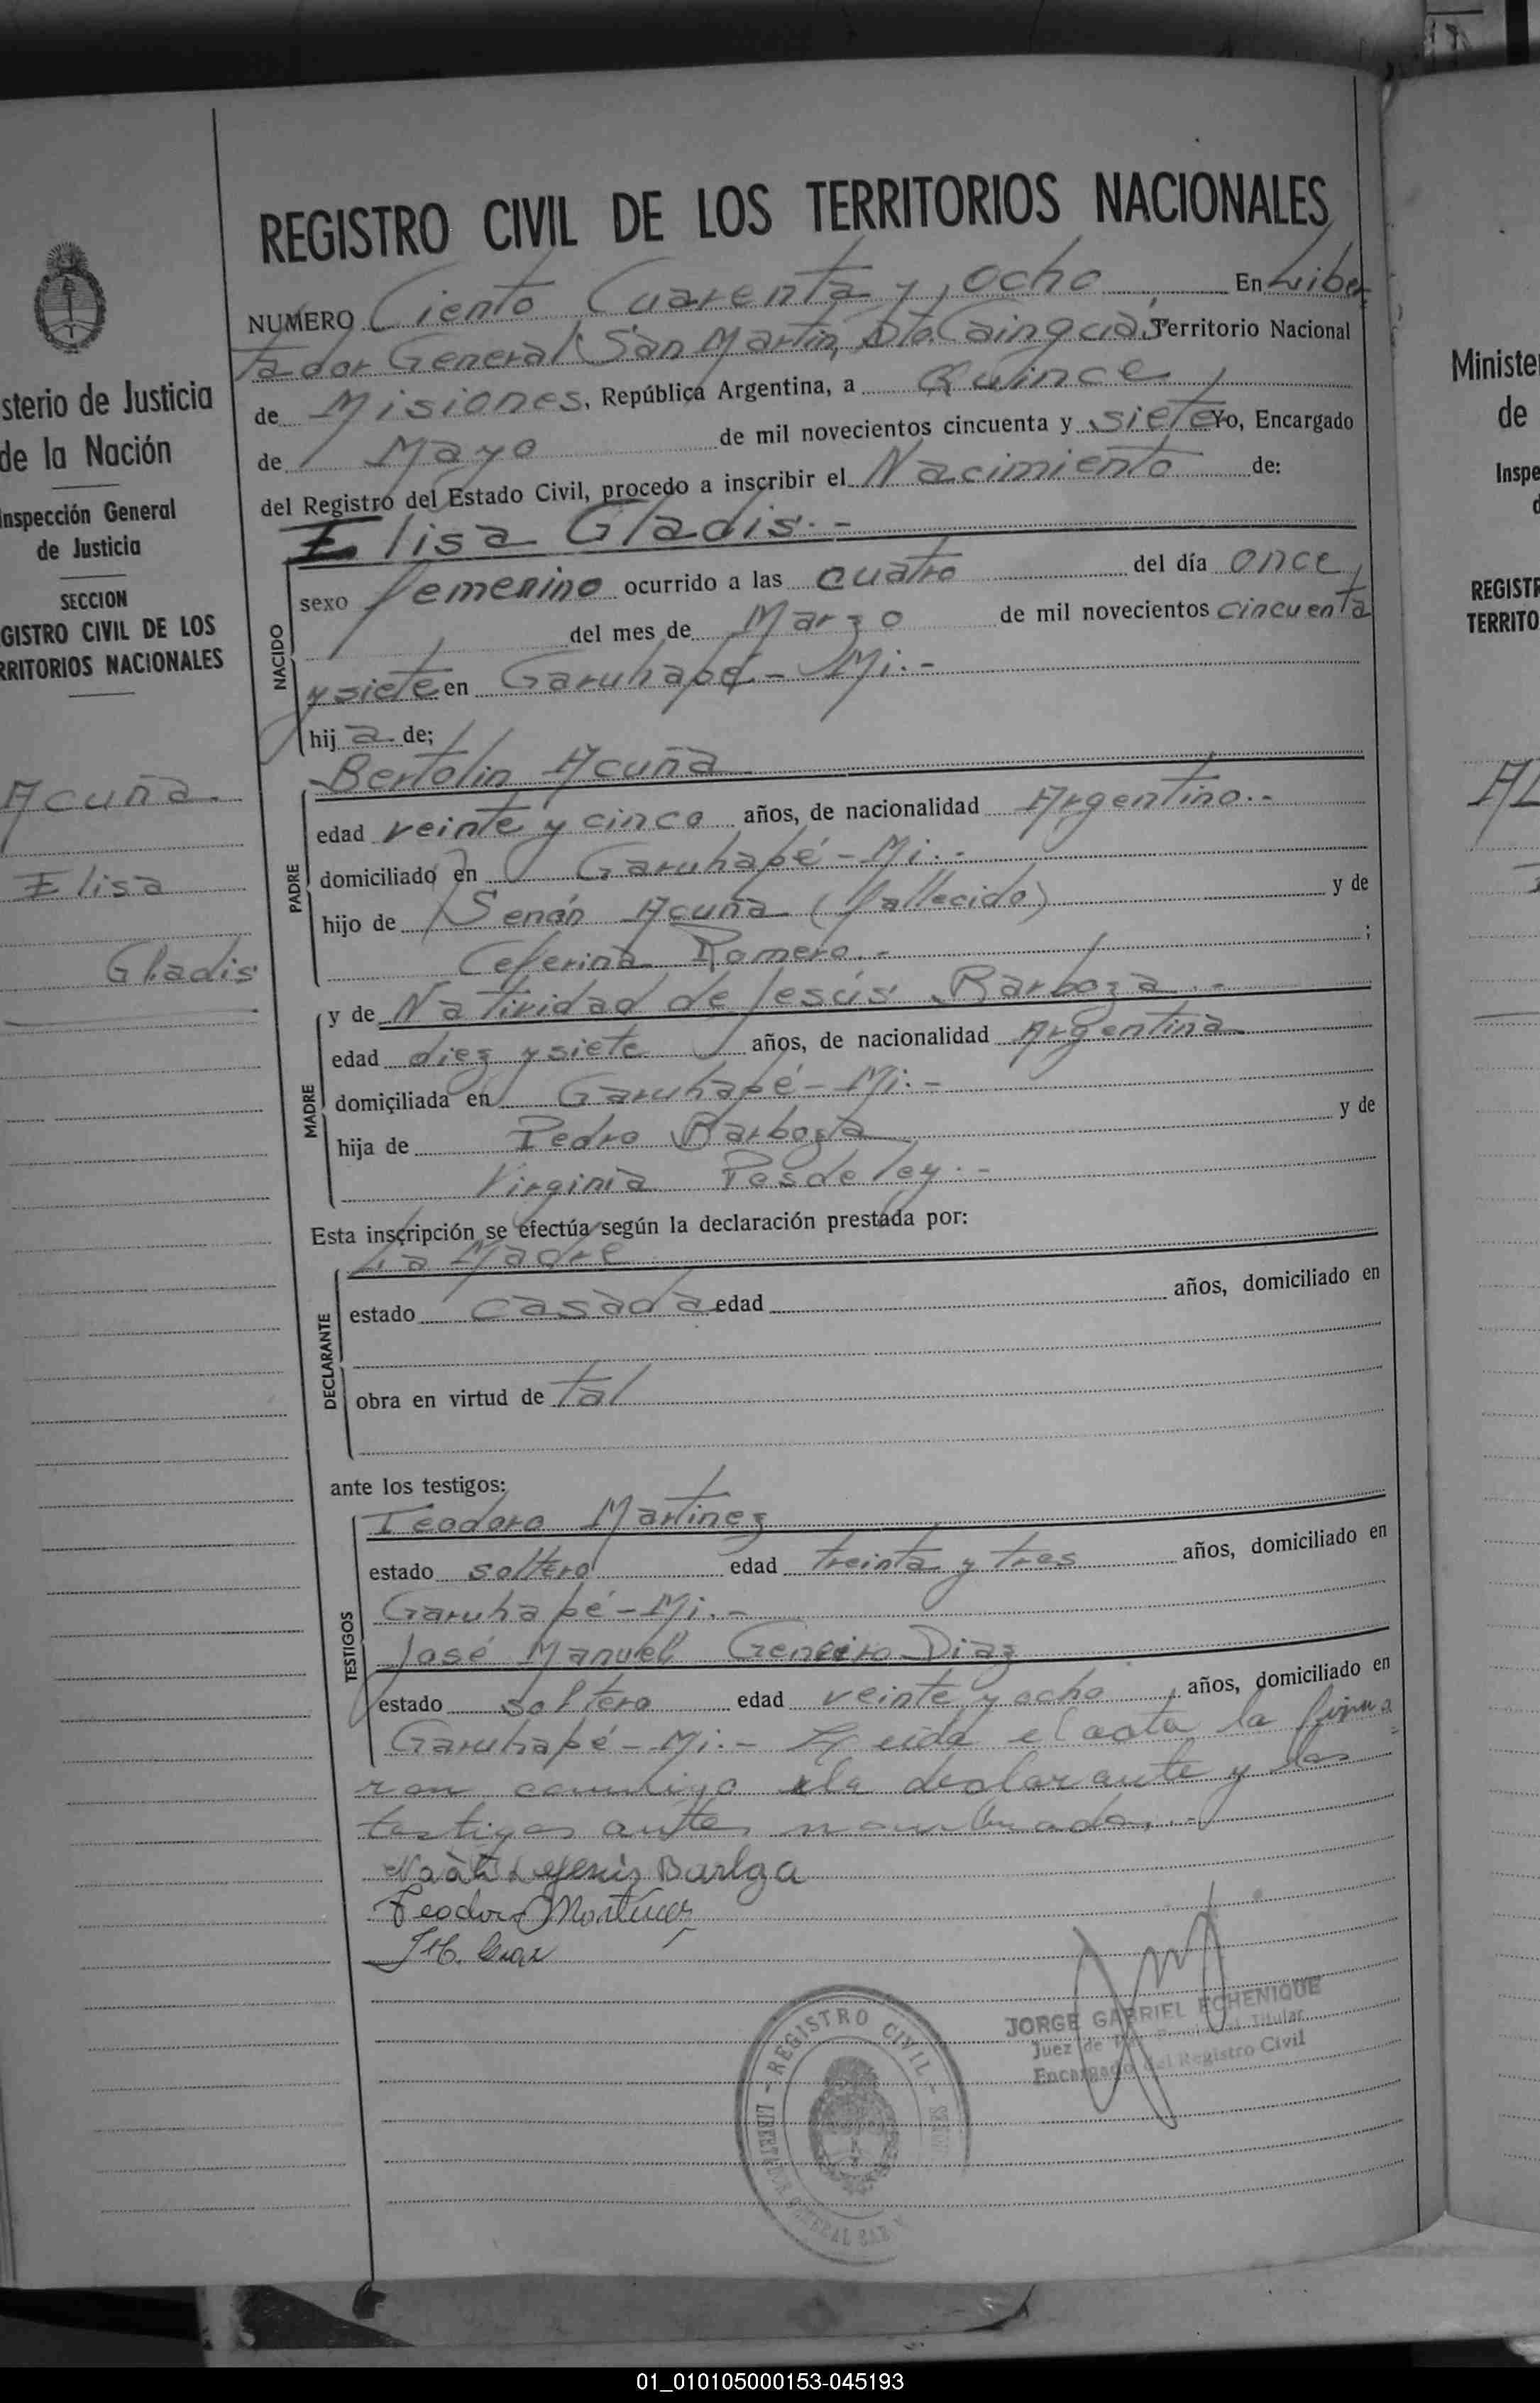 REGISTRO CIVIL DE LOS TERRITORIOS NACIONALES
NUMERO Ciento Cuarenta y ocho En Liber
tador General San Martin, Dto. Cainguás, Territorio Nacional
de Misiones, República Argentina, a Quince
de Mayo de mil novecientos cincuenta y siete Yo, Encargado
del Registro del Estado Civil, procedo a inscribir el Nacimiento de:
Elisa Gladis.-
NACIDO
sexo femenino ocurrido a las cuatro del día once
del mes de Marzo de mil novecientos cincuenta
y siete en Garuhapé - Mi.-
hij a de;
Bertolin Acuña
PADRE
edad veinte y cinco años, de nacionalidad Argentino.-
domiciliado en Garuhapé - Mi.-
hijo de Senán Acuña (fallecido) y de
Ceferina Romero.- ;
MADRE
y de Natividad de Jesús Barboza.-
edad diez y siete años, de nacionalidad Argentina
domiciliada en Garuhapé - Mi.-
hija de Pedro Barboza y de
Virginia Posdeley.-
Esta inscripción se efectúa según la declaración prestada por:
La Madre
DECLARANTE
estado casada edad años, domiciliado en
obra en virtud de tal
ante los testigos:
Teodoro Martinez
TESTIGOS
estado soltero edad treinta y tres años, domiciliado en
Garuhapé - Mi.-
José Manuel Diaz
estado soltero edad veinte y ocho años, domiciliado en
Garuhapé - Mi.- Leida el acta la firma
ron conmigo la declarante y los
testigos antes nombrados.-
Barboza
Teodoro Martinez
REGISTRO CIVIL
LIBERTADOR GENERAL SAN
JORGE GABRIEL ECHENIQUE
Juez de Paz Titular
Encargado del Registro Civil
sterio de Justicia
de la Nación
Inspección General
de Justicia
SECCION
GISTRO CIVIL DE LOS
RRITORIOS NACIONALES
Acuña.
Elisa
Gladis
Ministe
de
Inspe
d
REGISTR
TERRITO
AL
01_010105000153-045193